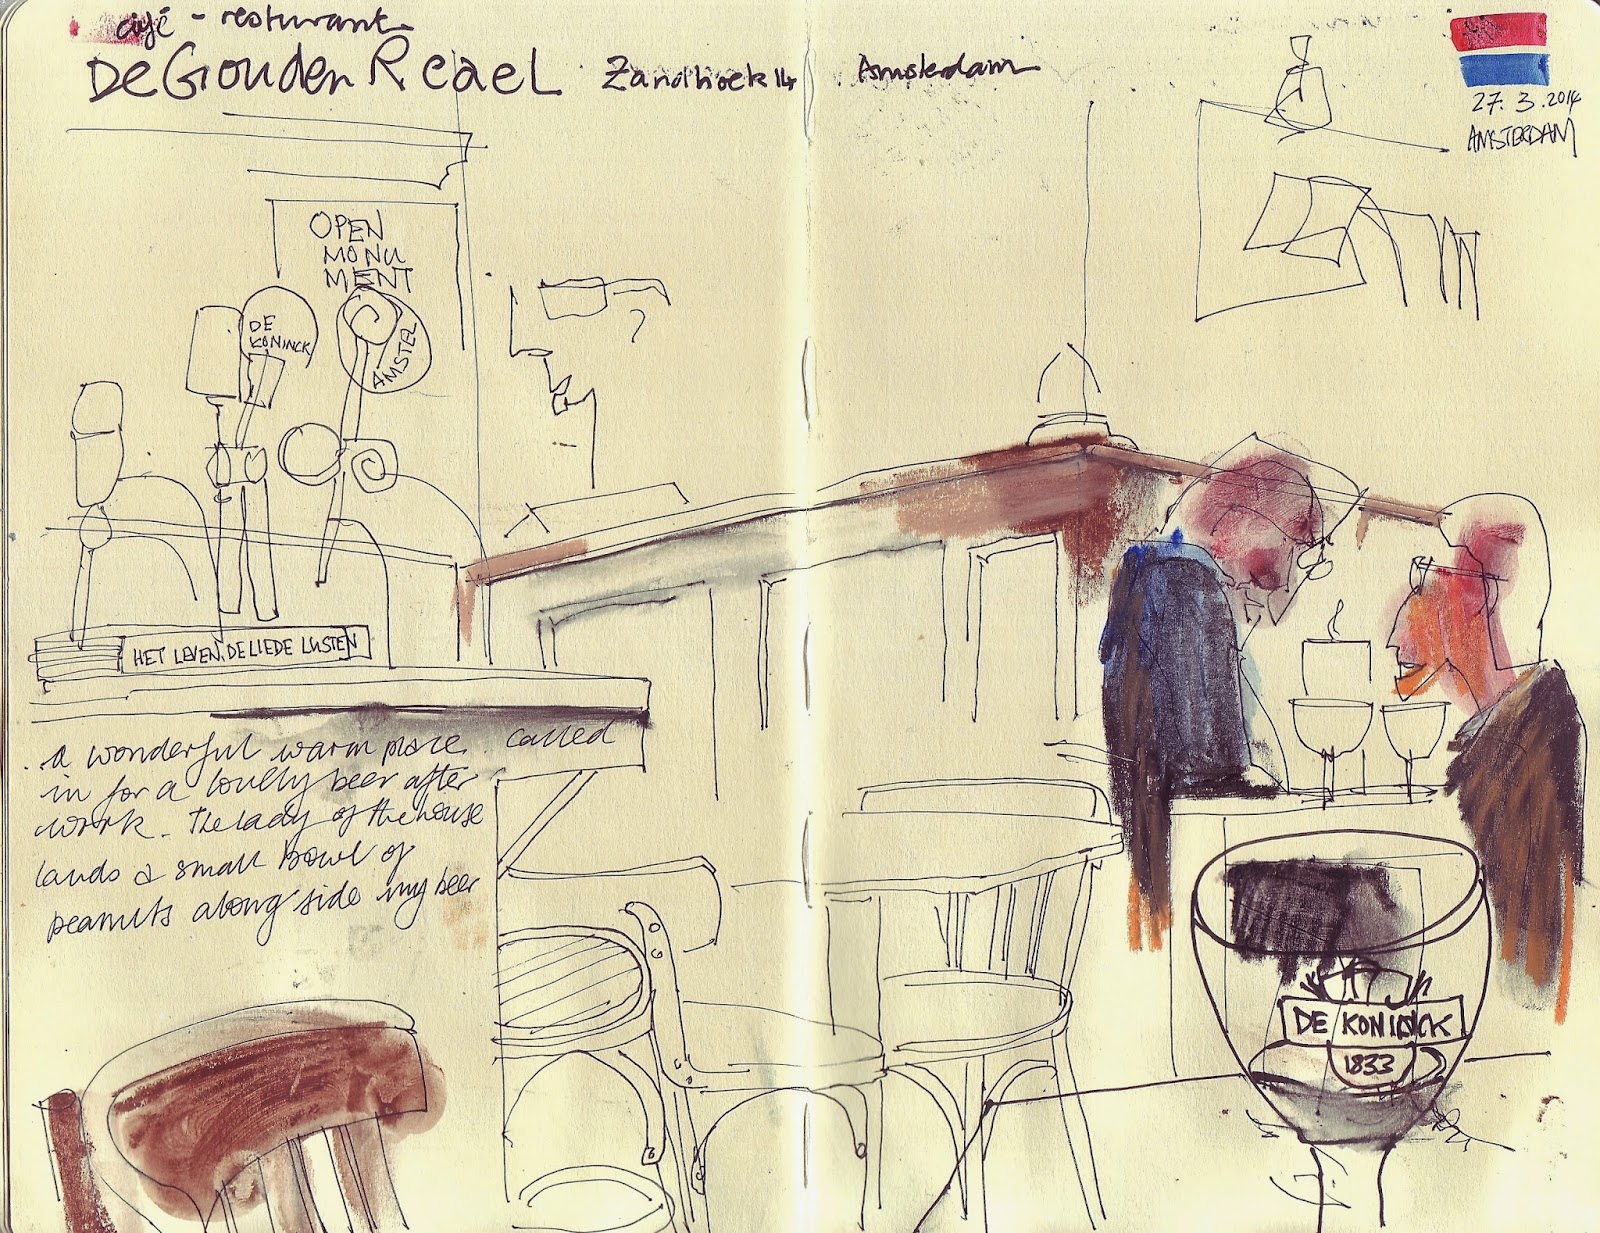 café - resturant
De Gouden Reael Zandhoek 14 Amsterdam
27.3.2014
AMSTERDAM
OPEN
MONU
MENT
DE
KONINCK
AMSTEL
HET LEVEN, DE LIEDE LUSTEN
A wonderful warm place. called
in for a lovely beer after
work. The lady of the house
lands a small bowl of
peanuts along side my beer
DE KONINCK
1833